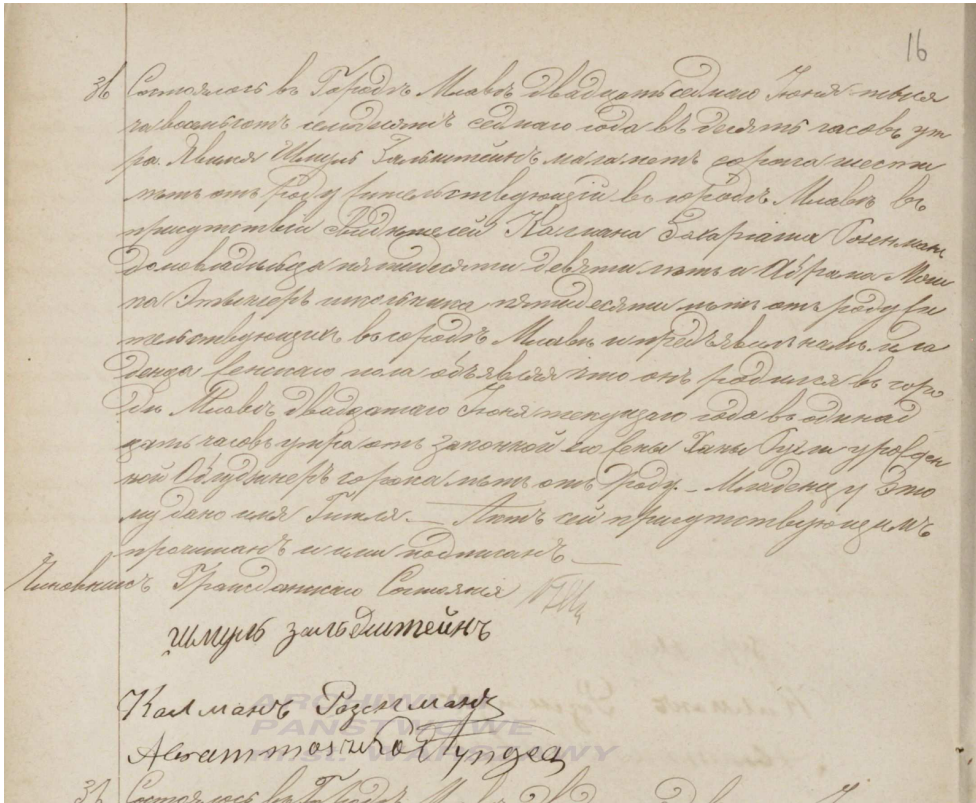 16
36 Состоялось въ Городѣ Млавѣ двадцать седьмаго Іюня тысяча
ча восемьсотъ семдесятъ седмаго года въ десять часовъ ут
ра. Явился Шмуль Зальштейнъ меламетъ сорока шести
лѣтъ отъ роду жительствующій въ городѣ Млавѣ въ
присутствіи свидѣтелей Калмана Захаріаша Розенмана
домовладѣльца пятидесяти девяти лѣтъ и Абрама Мош
ка школьника пятидесяти лѣтъ отъ роду жи
тельствующихъ въ городѣ Млавѣ и предъявилъ намъ мла
денца женскаго пола объявляя что онъ родился въ горо
дѣ Млавѣ двадцатаго Іюня текущаго года въ одинад
цать часовъ утра отъ законной его жены Ханы урожден
ной сорока лѣтъ отъ роду. – Младенцу это
му дано имя Гитля. — Актъ сей присутствующимъ
прочитанъ и ими подписанъ —
Чиновникъ Гражданскаго Состоянія
Шмуль Зальдштейнъ
Калманъ Розенманъ
ARCHIWUM
PAŃSTWOWE
M.ST. WARSZAWY
37 Состоялось въ Городѣ